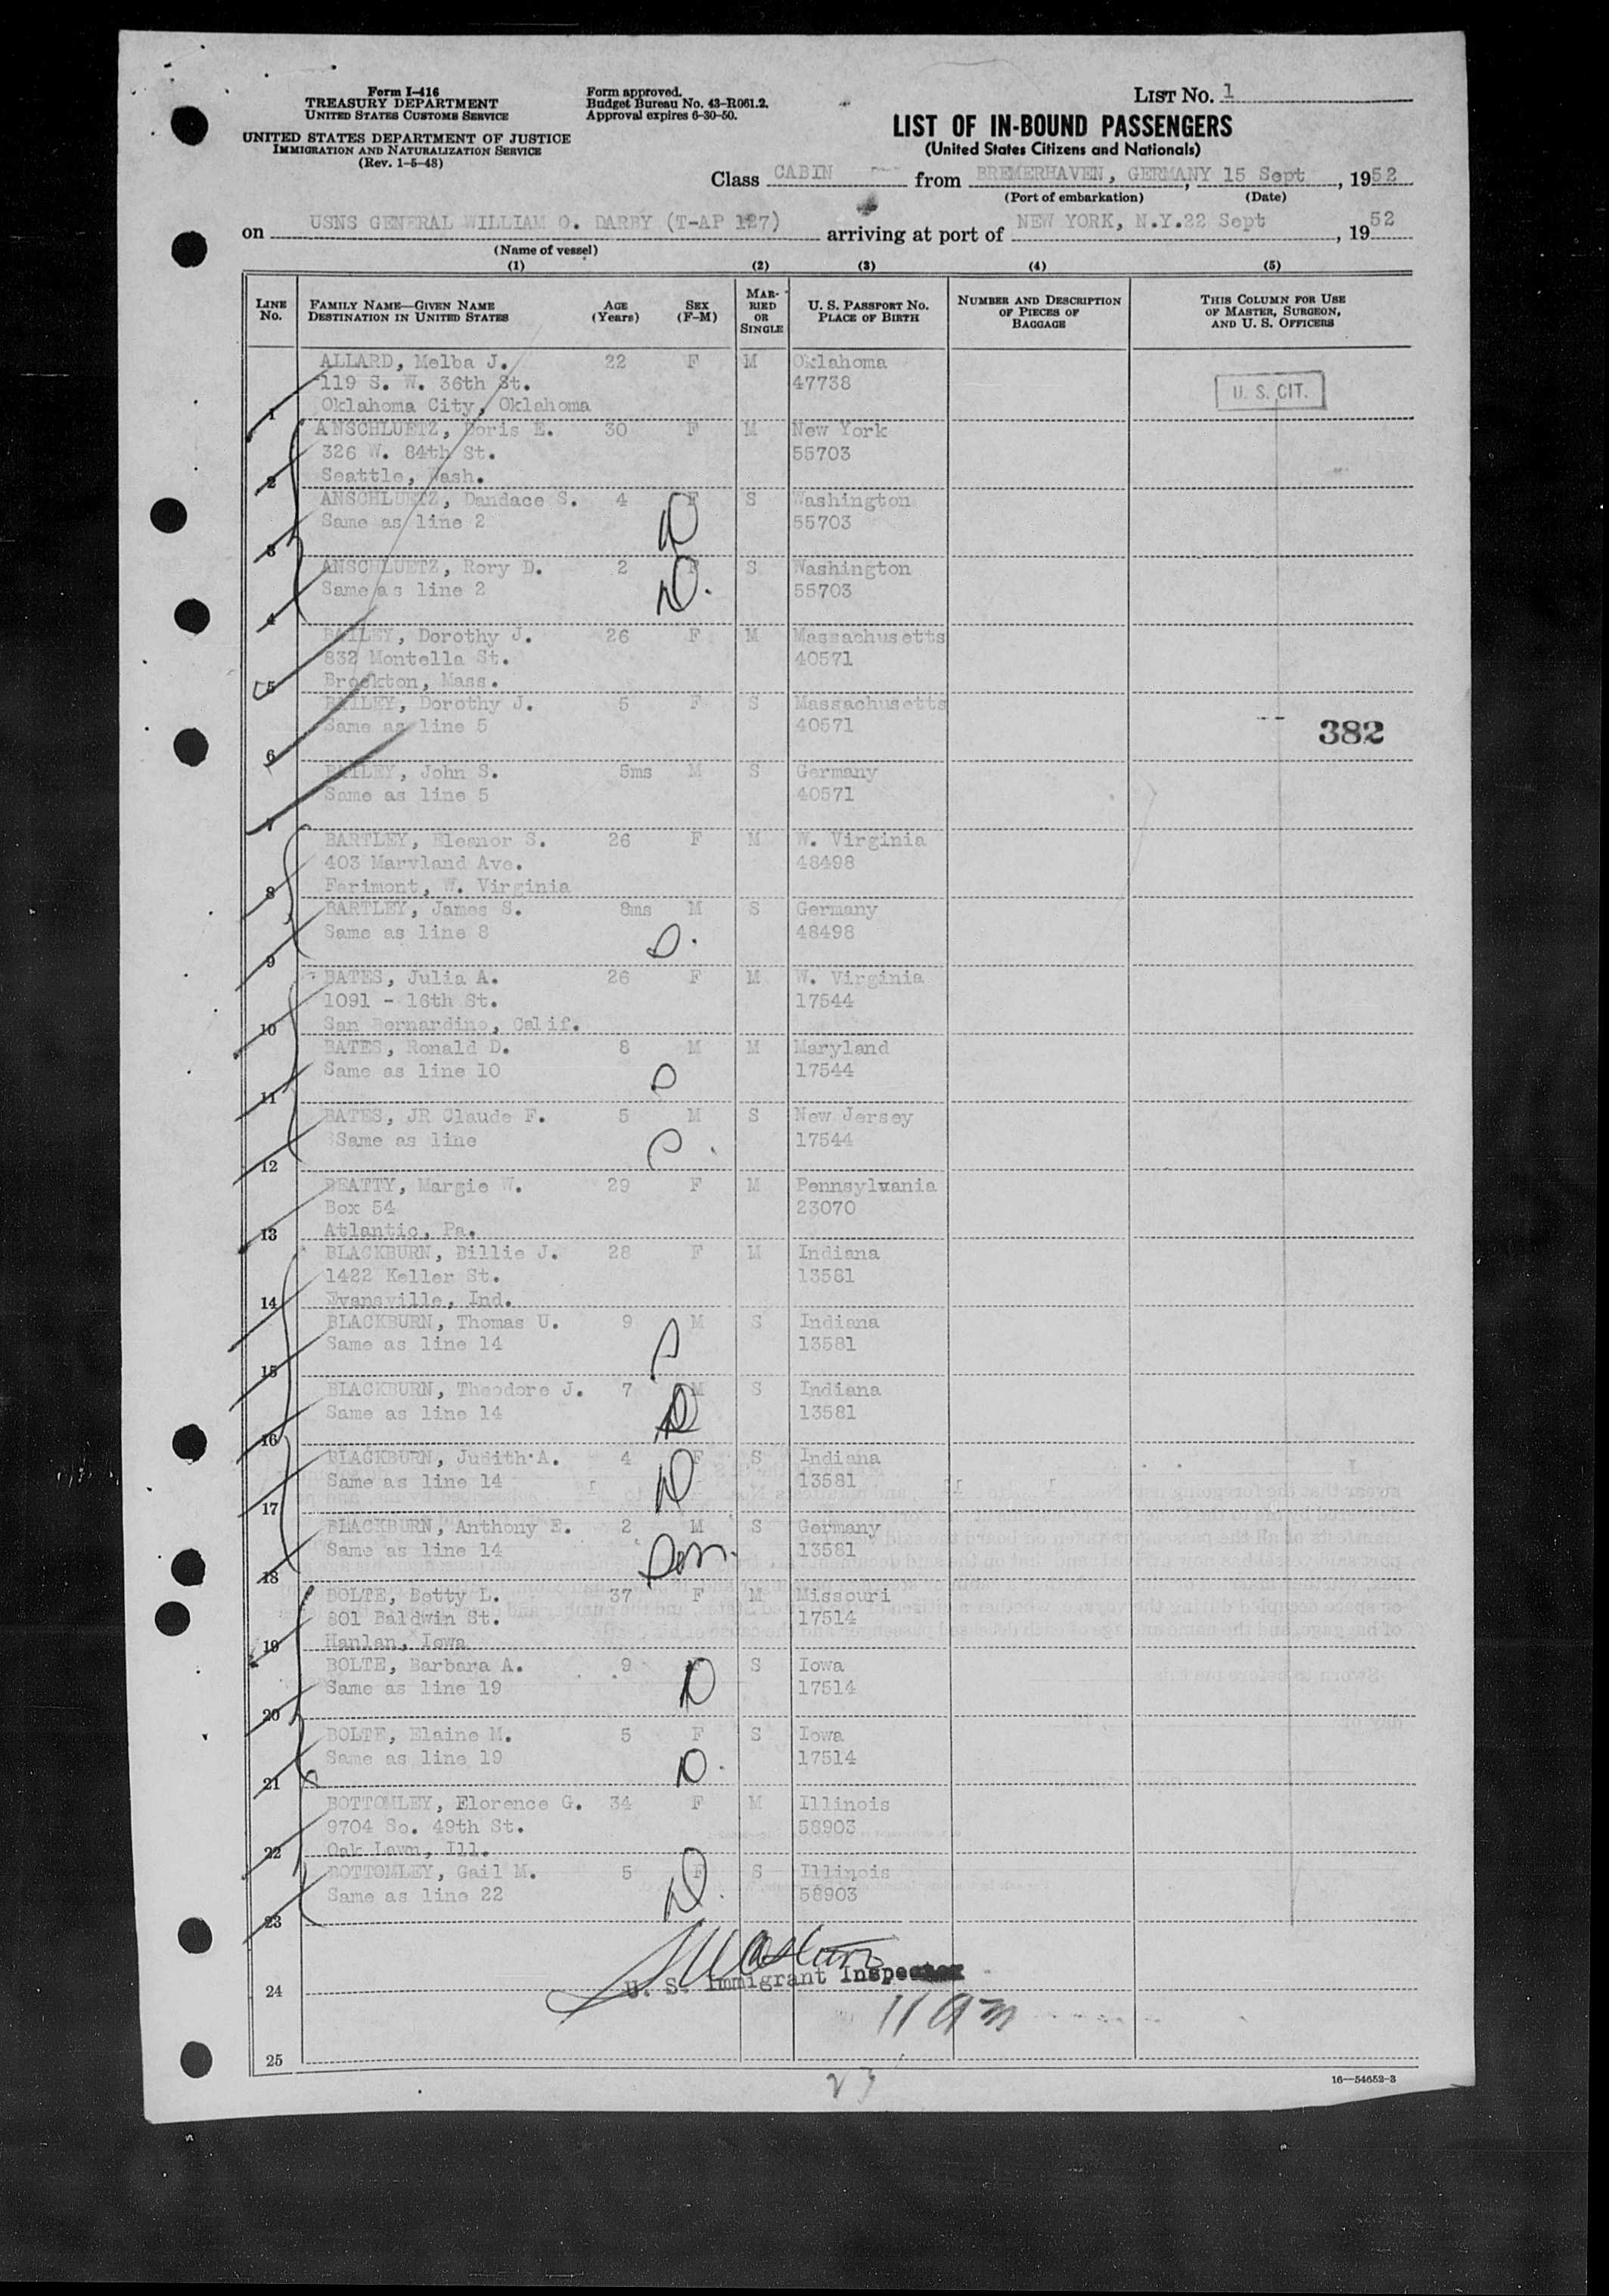 Form I-416
TREASURY DEPARTMENT
UNITED STATES CUSTOMS SERVICE
UNITED STATES DEPARTMENT OF JUSTICE
IMMIGRATION AND NATURALIZATION SERVICE
(Rev. 1-5-48)
Form approved.
Budget Bureau No. 43-R061.2.
Approval expires 6-30-50.
LIST NO. 1
LIST OF IN-BOUND PASSENGERS
(United States Citizens and Nationals)
Class CABIN from BREMERHAVEN, GERMANY, 15 Sept, 1952
(Port of embarkation) (Date)
on USNS GENERAL WILLIAM O. DARBY (T-AP 127) arriving at port of NEW YORK, N.Y. 22 Sept, 1952
(Name of vessel)
(1) (2) (3) (4) (5)
LINE NO. FAMILY NAME—GIVEN NAME DESTINATION IN UNITED STATES AGE (Years) SEX (F-M) MARRIED OR SINGLE U. S. PASSPORT NO. PLACE OF BIRTH NUMBER AND DESCRIPTION OF PIECES OF BAGGAGE THIS COLUMN FOR USE OF MASTER, SURGEON, AND U. S. OFFICERS
ALLARD, Melba J. 22 F M Oklahoma
119 S. W. 36th St. 47738 U. S. CIT.
1 Oklahoma City, Oklahoma
ANSCHLUETZ, Doris E. 30 F M New York
326 W. 84th St. 55703
2 Seattle, Wash.
ANSCHLUETZ, Dandace S. 4 F S Washington
Same as line 2 55703
3
ANSCHLUETZ, Rory D. 2 F S Washington
Same as line 2 55703
4
BAILEY, Dorothy J. 26 F M Massachusetts
832 Montella St. 40571
5 Brockton, Mass.
BAILEY, Dorothy J. 5 F S Massachusetts
Same as line 5 40571 382
6
BAILEY, John S. 5ms M S Germany
Same as line 5 40571
7
BARTLEY, Eleanor S. 26 F M W. Virginia
403 Maryland Ave. 48498
8 Farimont, W. Virginia
BARTLEY, James S. 8ms M S Germany
Same as line 8 48498
9
BATES, Julia A. 26 F M W. Virginia
1091 - 16th St. 17544
10 San Bernardino, Calif.
BATES, Ronald D. 8 M M Maryland
Same as line 10 17544
11
BATES, JR Claude F. 5 M S New Jersey
Same as line 17544
12
BEATTY, Margie W. 29 F M Pennsylvania
Box 54 23070
13 Atlantic, Pa.
BLACKBURN, Billie J. 28 F M Indiana
1422 Keller St. 13581
14 Evansville, Ind.
BLACKBURN, Thomas U. 9 M S Indiana
Same as line 14 13581
15
BLACKBURN, Theodore J. 7 M S Indiana
Same as line 14 13581
16
BLACKBURN, Judith A. 4 F S Indiana
Same as line 14 13581
17
BLACKBURN, Anthony E. 2 M S Germany
Same as line 14 13581
18
BOLTE, Betty L. 37 F M Missouri
801 Baldwin St. 17514
19 Hanlan, Iowa
BOLTE, Barbara A. 9 F S Iowa
Same as line 19 17514
20
BOLTE, Elaine M. 5 F S Iowa
Same as line 19 17514
21
BOTTOMLEY, Florence G. 34 F M Illinois
9704 So. 49th St. 58903
22 Oak Lawn, Ill.
BOTTOMLEY, Gail M. 5 F S Illinois
Same as line 22 58903
23
U. S. Immigrant Inspector
24
25
23
16—54652-3